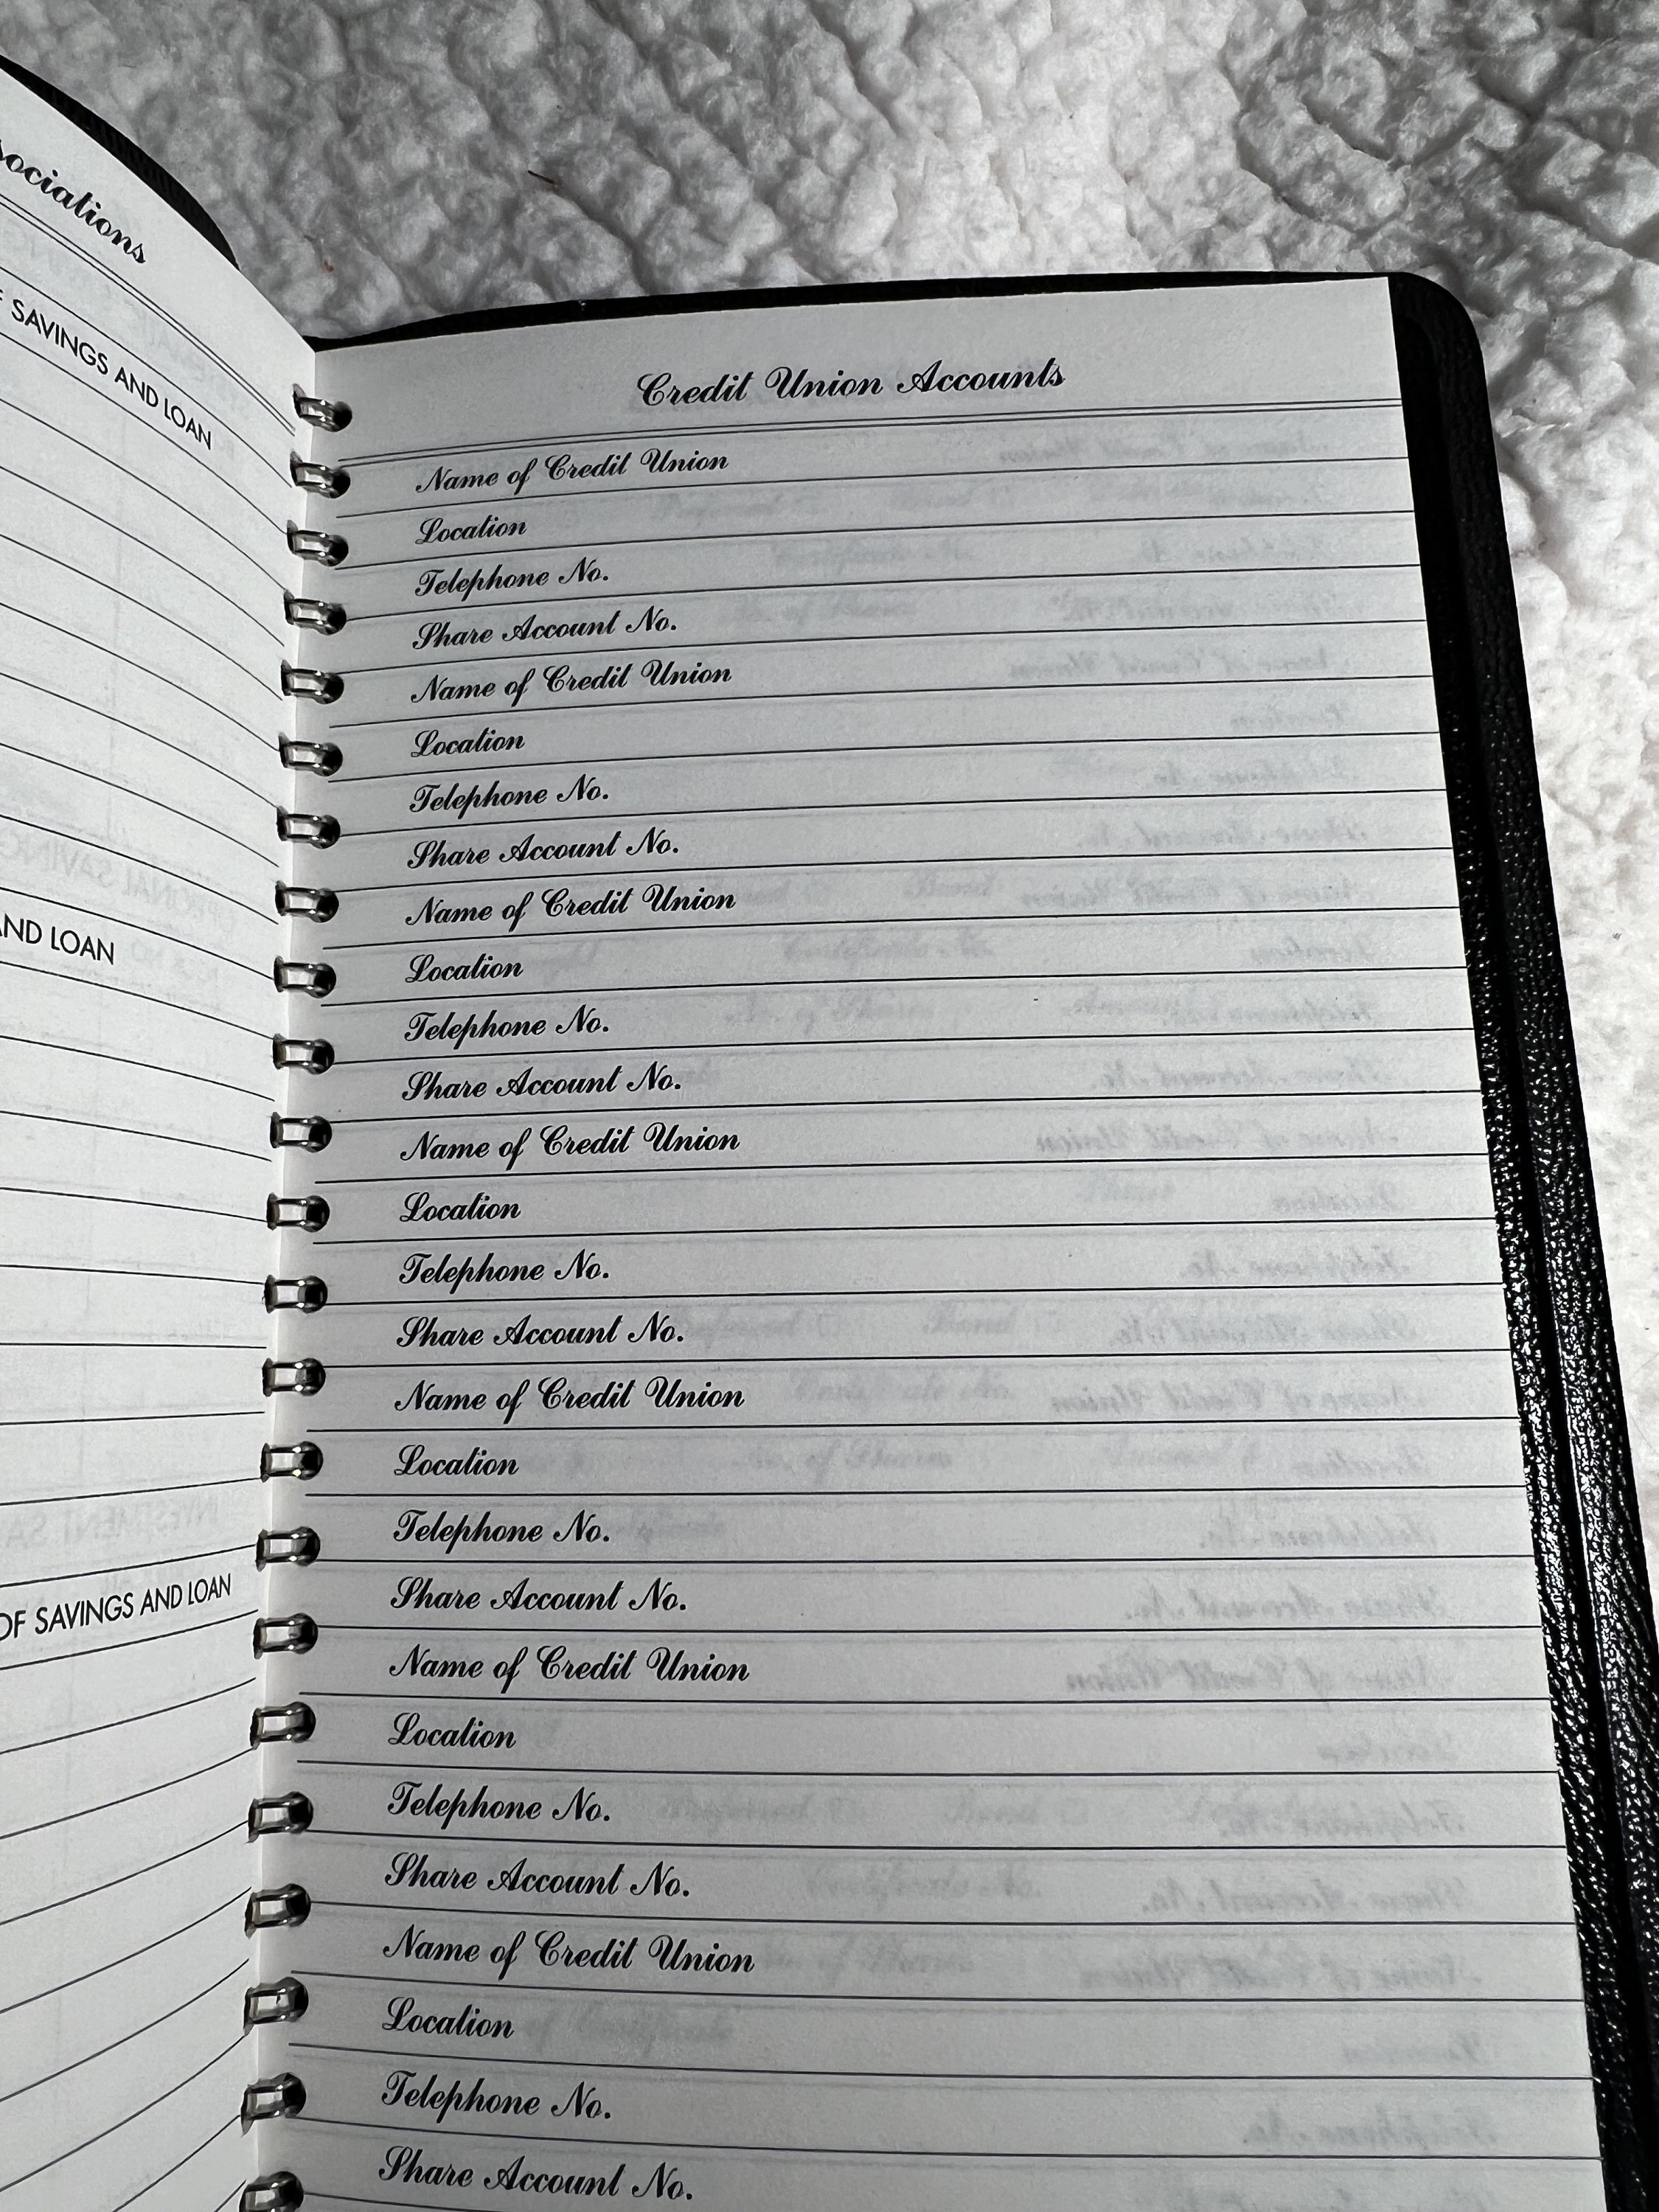 sociations
F SAVINGS AND LOAN
AND LOAN
OF SAVINGS AND LOAN
Credit Union Accounts
Name of Credit Union
Location
Telephone No.
Share Account No.
Name of Credit Union
Location
Telephone No.
Share Account No.
Name of Credit Union
Location
Telephone No.
Share Account No.
Name of Credit Union
Location
Telephone No.
Share Account No.
Name of Credit Union
Location
Telephone No.
Share Account No.
Name of Credit Union
Location
Telephone No.
Share Account No.
Name of Credit Union
Location
Telephone No.
Share Account No.